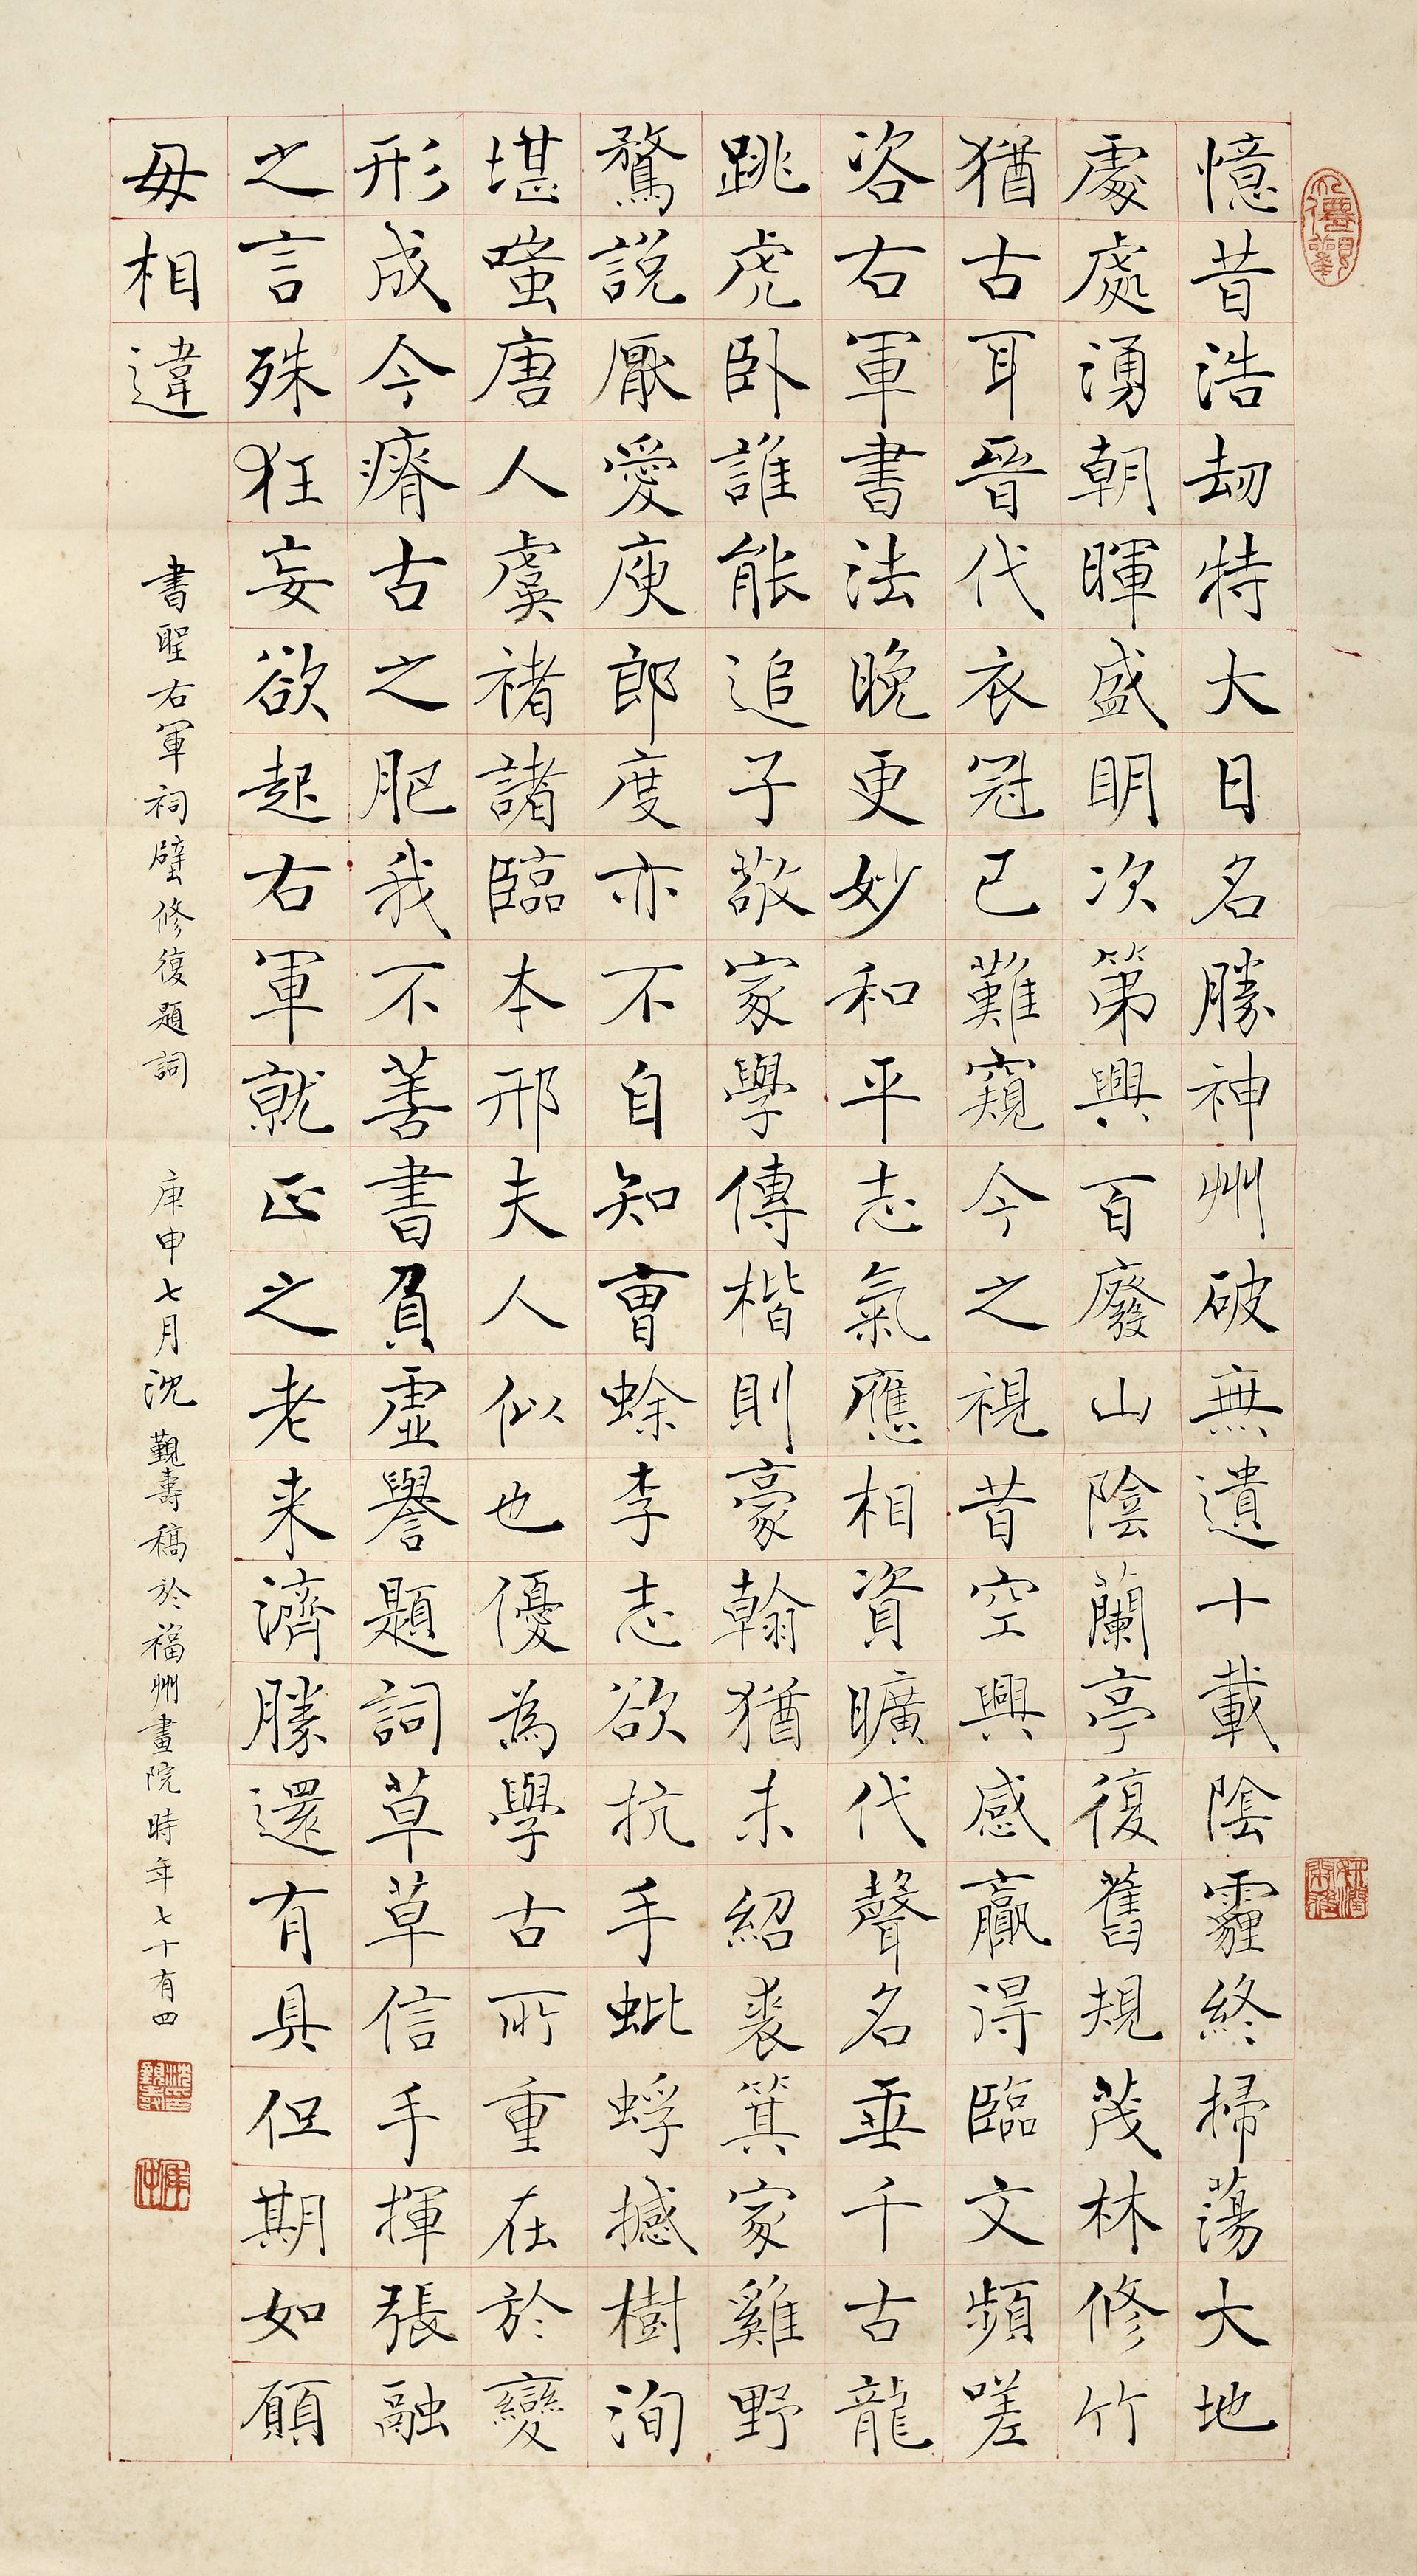 憶昔浩劫特大日名勝神州破無遺十載陰霾終掃蕩大地
處處湧朝暉盛明次第興百廢山陰蘭亭復舊規茂林修竹
猶古耳晉代衣冠已難窺今之視昔空興感贏得臨文頻嗟
咨右軍書法晚更妙和平志氣應相資曠代聲名垂千古龍
跳虎臥誰能追子敬家學傳楷則豪翰猶未紹裘箕家雞野
鶩說厭愛庾郎度亦不自知曹蜍李志欲抗手蚍蜉撼樹洵
堪嗤唐人虞褚諸臨本邢夫人似也優為學古所重在於變
形成今瘠古之肥我不善書負虛譽題詞草草信手揮張融
之言殊狂妄欲起右軍就正之老來濟勝還有具但期如願
毋相違
書聖右軍祠壁修復題詞 庚申七月沈覲壽稿於福州畫院時年七十有四